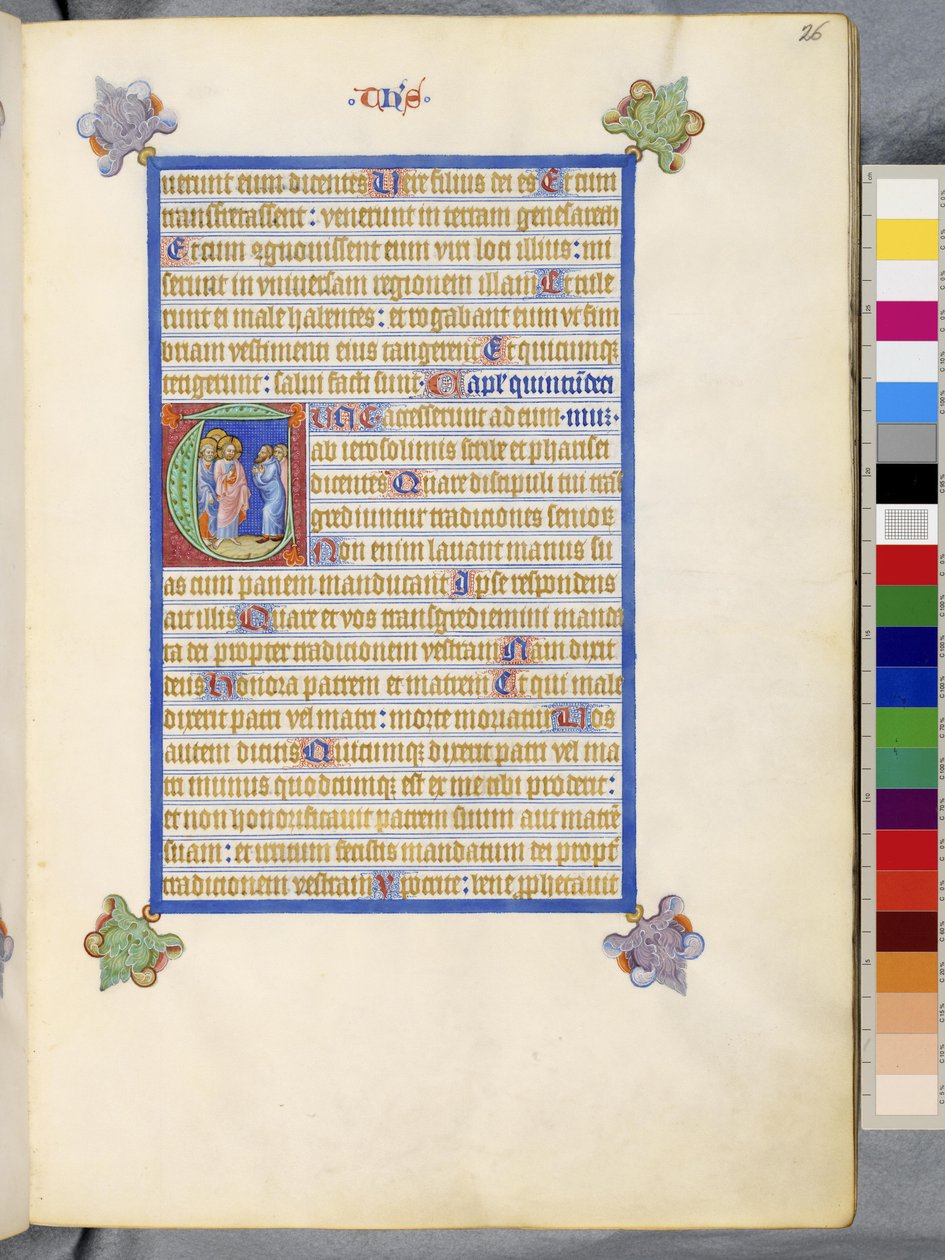 26
uerunt eum dicentes Vere filius dei es Et cum
transfretassent: venerunt in terram genesareth
Et cum cognouissent eum viri loci illius: mi
serunt in vniuersam regionem illam Et tule
runt ei male habentes: et rogabant eum vt fim
briam vestimenti eius tangerent Et quicumq;
tetigerunt: salui facti sunt. Capl' quintū deci
TUNC accesserunt ad eum ·muz·
ab ierosolimis scribe et pharisei
dicentes Quare discipuli tui trās
grediuntur tradiciones senior
Non enim lauant manus su
as cum panem manducant Ipse respondens
ait illis Quare et vos transgredimini manda
ta dei propter tradicionem vestram Nam dixit
deus Honora patrem et matrem Et qui male
dixerit patri vel matri: morte moriatur Vos
autem dicitis Quicumq; dixerit patri vel ma
tri munus quodcumq; est ex me tibi proderit:
et non honorificauit patrem suum aut matrē
suam: et irritum fecistis mandatum dei propt'
tradicionem vestram Ypocrite: bene pphetauit